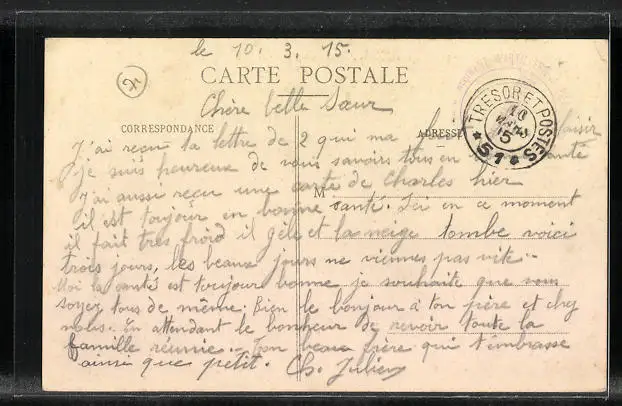 le 10. 3. 15.
CARTE POSTALE
Chère belle Sœur
CORRESPONDANCE
ADRESSE
TRESOR ET POSTES
10
MARS
15
* 51 *
J'ai reçu la lettre de 2 qui ma plaisir
je suis heureux de vous savoirs tous en santé
J'ai aussi reçu une carte de Charles hier
M
il est toujour en bonne santé. Ici en ce moment
il fait très froid il gèle et la neige tombe voici
trois jours, les beaux jours ne viennes pas vite.
Moi la santé est toujour bonne je souhaite que vous
soyez tous de même. Bien le bonjour à ton père et chez
nous. En attendant le bonheur de revoir toute la
famille réunie. Ton beau frère qui t'embrasse
ainsi que petit. Ch. Julien